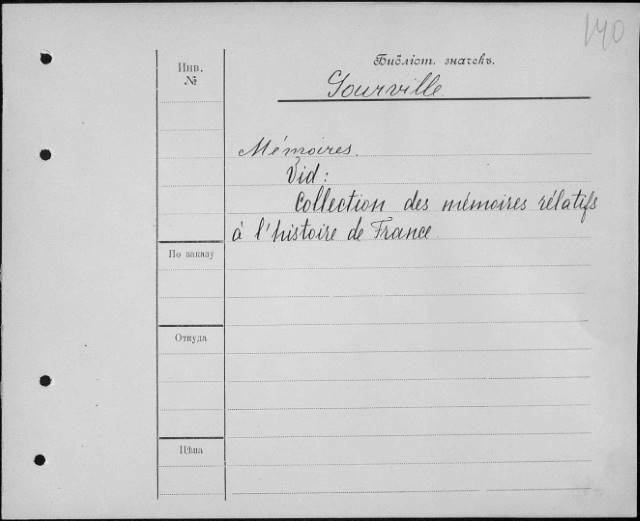 140
Инв.
№
Библіот. значекъ.
Gourville
Mémoires.
Vid:
Collection des mémoires rélatifs
à l'histoire de France
По заказу
Откуда
Цѣна